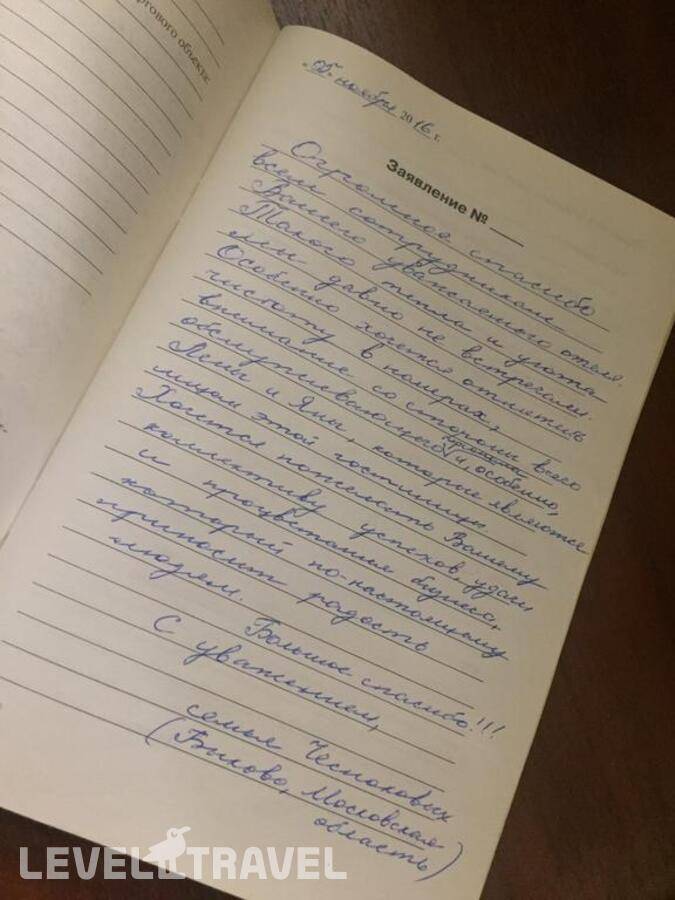 ргового объекта:
"05" ноября 2016 г.
Заявление №
Огромное спасибо
всем сотрудникам
Вашего уважаемого отеля.
Такого тепла и уюта
мы давно не встречали.
Особенно хочется отметить
чистоту в номерах,
внимание со стороны всего
обслуживающего и, особенно,
Лены и Яны, которые являются
лицом этой гостиницы.
Хочется пожелать Вашему
коллективу успехов, удачи
и процветания бизнеса,
который по-настоящему
приносит радость
людям.
Большое спасибо!!!
С уважением,
семья Чесноковых
(Быково, Московская
область)
LEVEL TRAVEL